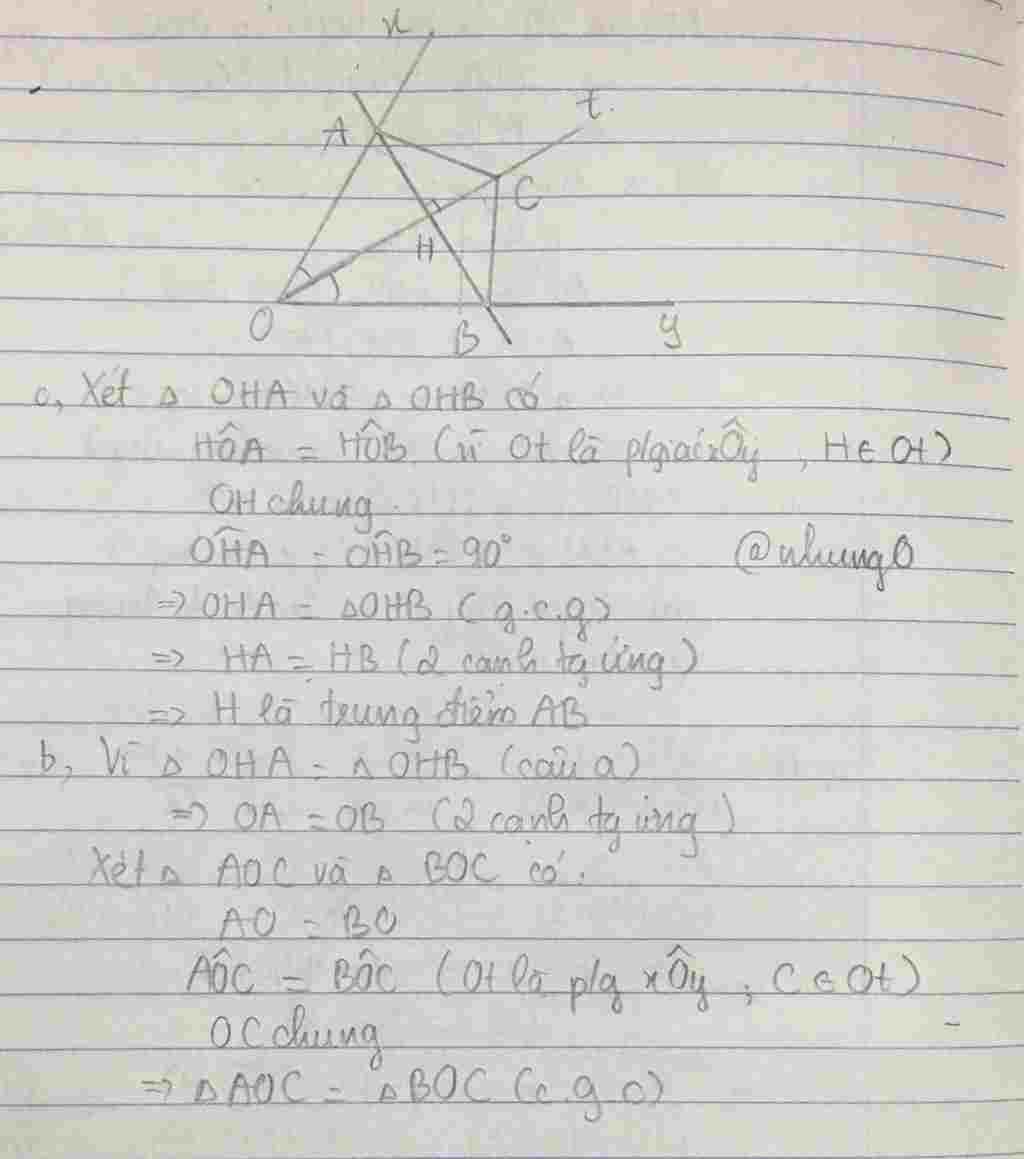 x
t.
A
C
H
O
B
y
c, Xét △ OHA và △ OHB có
HÔA = HÔB (vì Ot là p/giác xÔy, H ∈ Ot)
OH chung.
OĤA = OĤB = 90° @nhung0
=> OHA = △OHB (g.c.g)
=> HA = HB (2 cạnh tg ứng)
=> H là trung điểm AB
b, Vì △ OHA = △ OHB (câu a)
=> OA = OB (2 cạnh tg ứng)
Xét △ AOC và △ BOC có:
AO = BO
AÔC = BÔC (Ot là p/g xÔy, C ∈ Ot)
OC chung
=> △AOC = △BOC (c.g c)